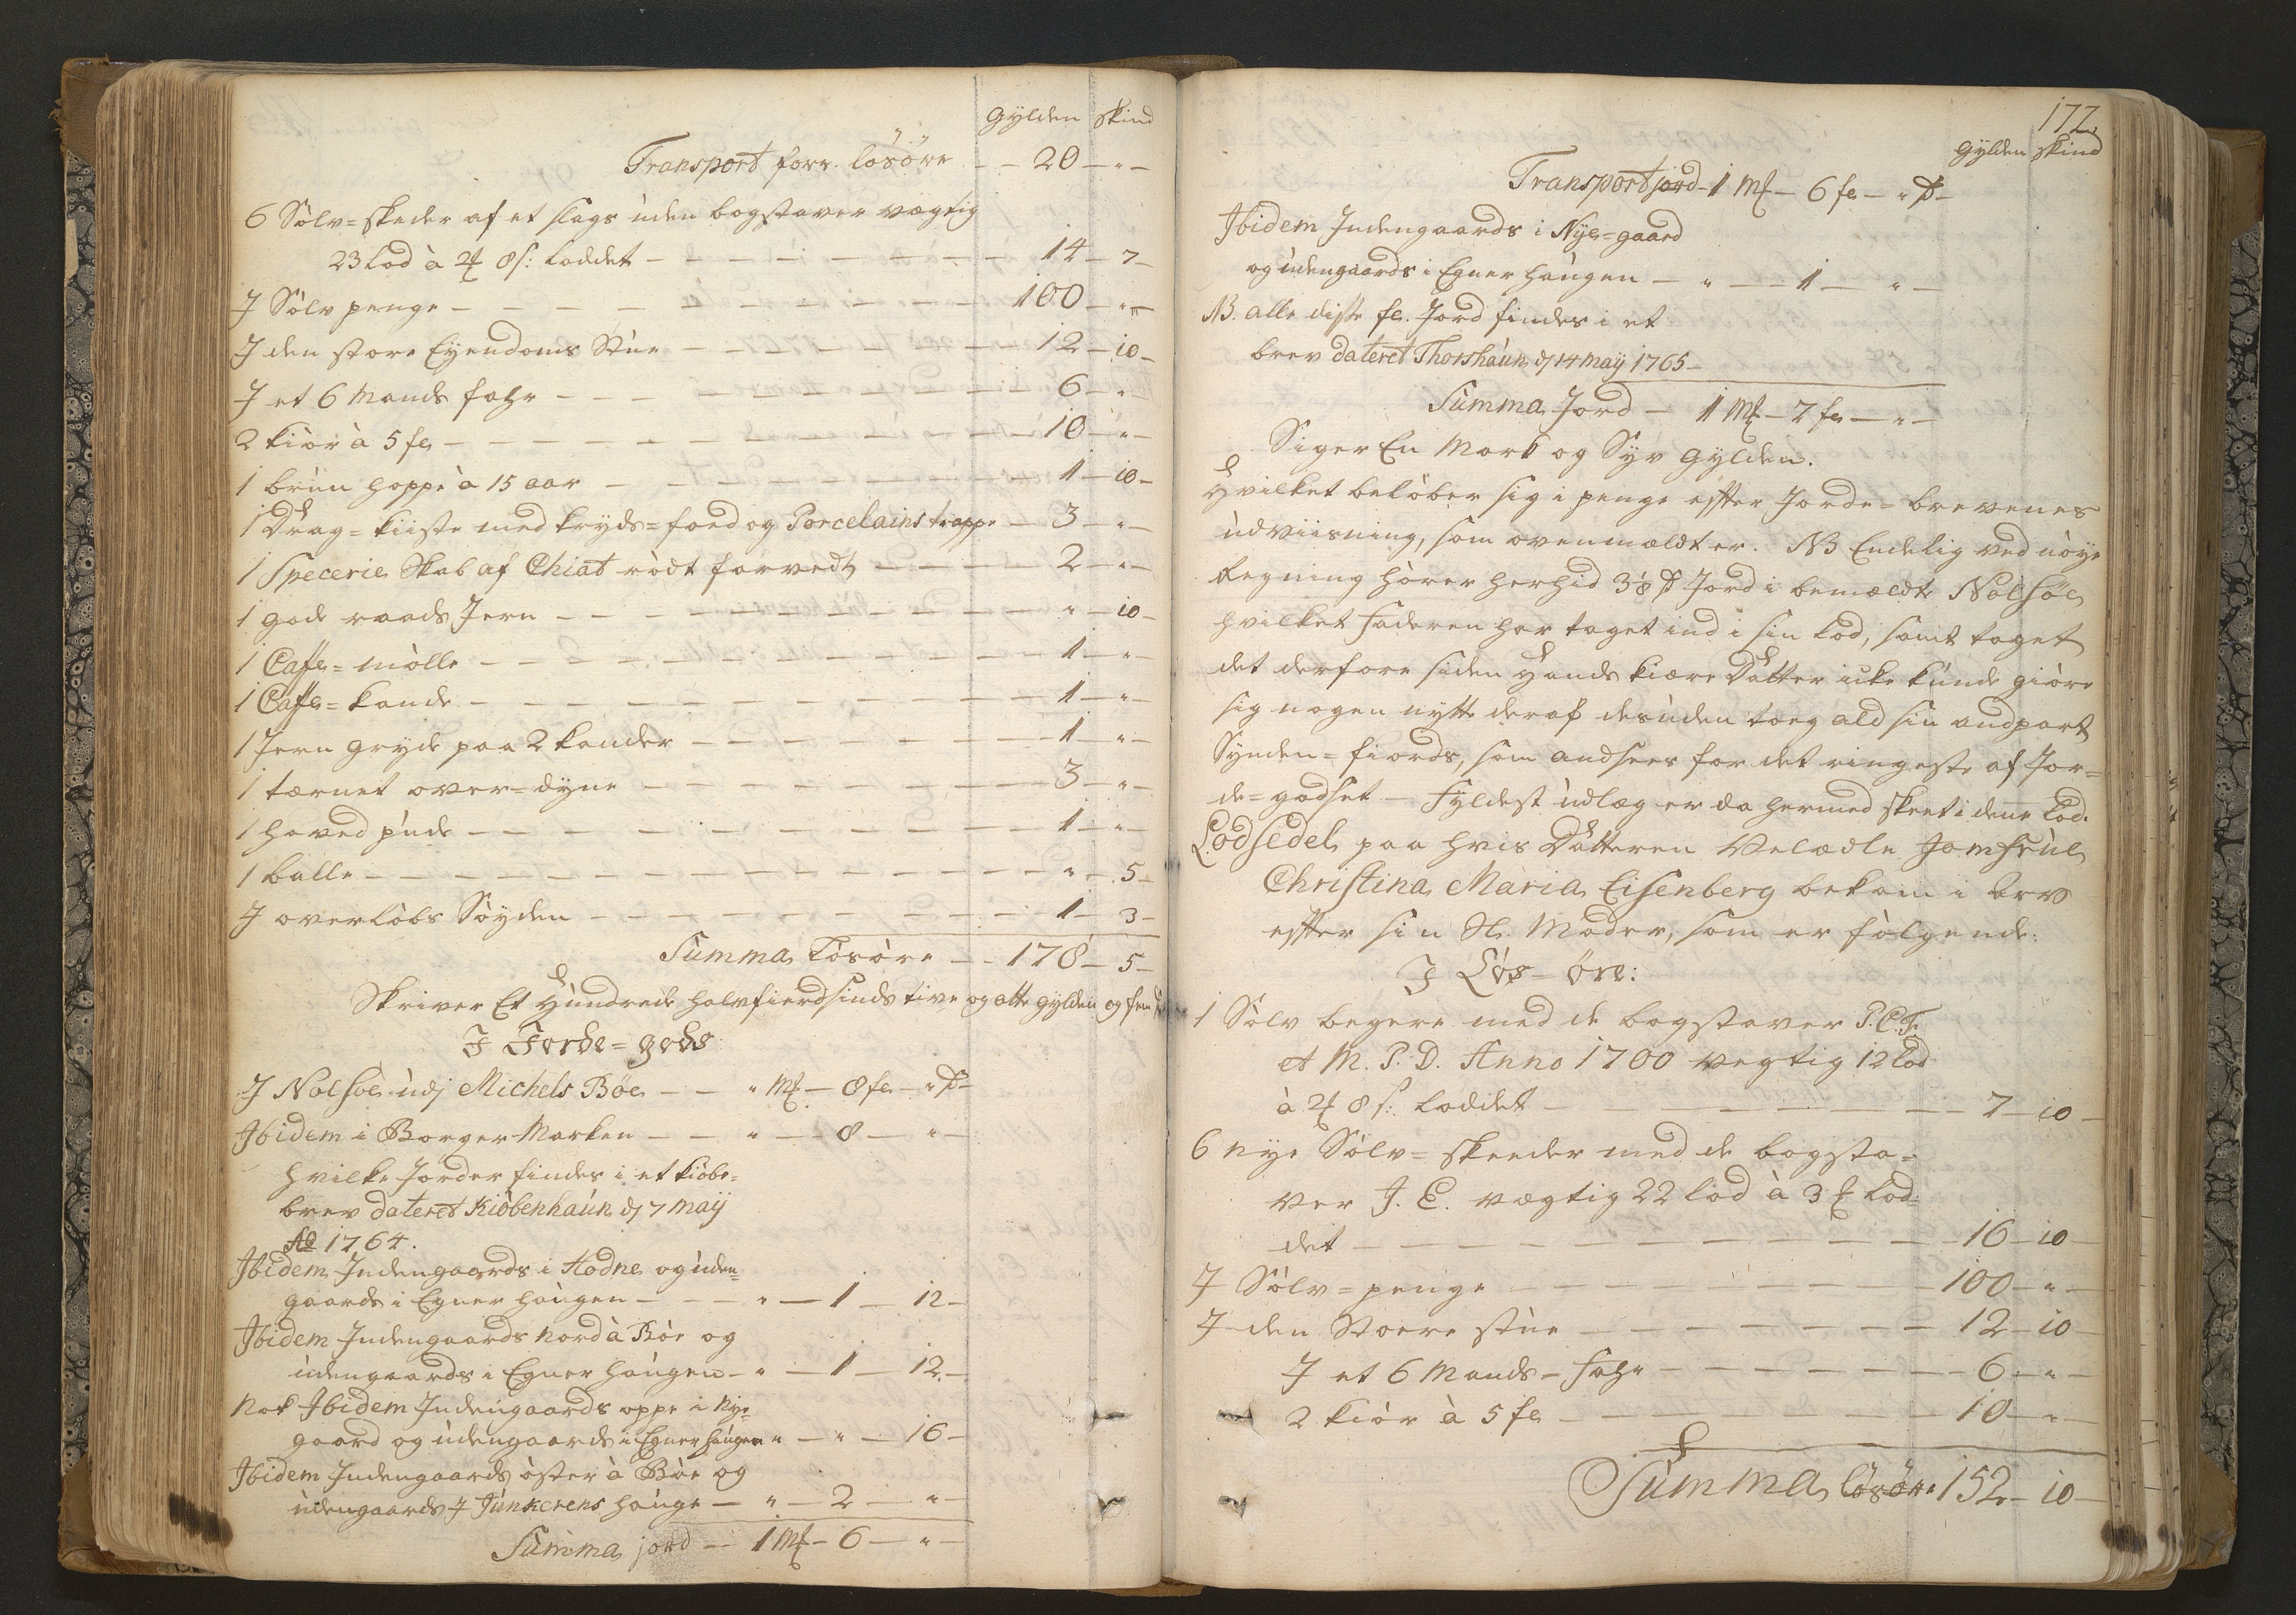 Gylden Skind
Transport forr. løsøre - - 20 - " -
6 Sølv=skeder af et slags uden bogstaver vægtig
23 Lod à 2 # 8 s: Loddet - - - - - - 14 - 7 -
J Sølv penge - - - - - - 100 - " -
J den store Eyendoms Stue - - - - - 12 - 10 -
J et 6 Mands fahr - - - - - - 6 - " -
2 Kiør à 5 fl - - - - - - 10 - " -
1 brun hoppe à 15 aar - - - - - 1 - 10 -
1 Drag=Kiiste med Kryds=foed og Porcelains trappe - 3 - " -
1 Specerie Skab af Chiat rødt farvedt - - - 2 - " -
1 gode raads Jern - - - - - - " - 10 -
1 Caffe=mølle - - - - - - 1 - " -
1 Caffe=Kande - - - - - - 1 - " -
1 Jern gryde paa 2 Kander - - - - - 1 - " -
1 tærnet over=dyne - - - - - - 3 - " -
1 hoved pude - - - - - - 1 - " -
1 balle - - - - - - " - 5 -
J overløbs Søyden - - - - - - 1 - 3 -
Summa Løsøre - - 178 - 5 -
Skriver Et Hundrede halvfierdsinds tive og otte gylden og fem
J Jorde=gods
J Nolsøe udj Michels Bøe - - " Mf - 8 fl - " S -
Jbidem i Borger Marken - - " - 8 - " -
hvilke Jorder findes i et Kiøbe=
brev dateret Kiöbenhaun dj 7 maij
Ao 1764.
Jbidem Indengaards i Hodne og uden=
gaards i Egner haugen - - " - 1 - 12 -
Jbidem Indengaards Nord à Bøe og
udengaards i Egner haugen - " - 1 - 12 -
Nok Jbidem Indengaards oppe i Nye
gaard og udengaards i Egner haugen " - " - 16 -
Jbidem Indengaards øster à Bøe og
udengaards J Junkerens hauge - " - 2 - " -
Summa jord - - 1 Mf - 6 - " -
177.
Gylden Skind
Transport jord - 1 Mf - 6 fl - " S -
Jbidem Indengaards i Nye=gaard
og udengaards i Egner haugen - " - 1 - " -
NB. alle disse fl. Jord findes i et
brev dateret Thorshaun dj 14 maij 1765 -
Summa Jord - 1 Mf - 7 fl - " -
Siger En Mark og Syv Gylden.
Hvilket beløber sig i penge efter Jorde=brevenes
udviisning, som ovenmældt er. NB Endelig ved nøye
Regning hører herhid 38 S Jord i bemældte Nolsøe
hvilket Faderen har taget ind i sin Lod, samt taget
det derfore siden Hands Kiære Datter icke kunde giøre
sig nogen nytte deraf desuden tog ald sin andpart
Synden=fiords, som andsees for det ringeste af Jor=
de=godset - Fyldest udlæg er da hermed skeet i denne Lod.
Lodsedel paa hvis Datteren Velædle Jomfrue
Christina Maria Eisenberg bekom i Arv
efter sin Sl. Moder, som er følgende:
J Løs-øre:
1 Sølv begere med de bogstaver P.C.F.
et M. P. D. Anno 1700 vegtig 12 Lod
à 2 # 8 s: Loddet - - - - - 7 - 10 -
6 nye Sølv=skeeder med de bogsta=
ver J. E. vægtig 22 Lod à 3 # Lod=
det - - - - - - 16 - 10 -
J Sølv=penge - - - - - 100 - " -
J den Stoere stue - - - - - 12 - 10 -
J et 6 Mands-Fahr - - - - 6 - " -
2 Kiør à 5 fl - - - - - 10 - " -
Summa løsøre 152 - 10 -